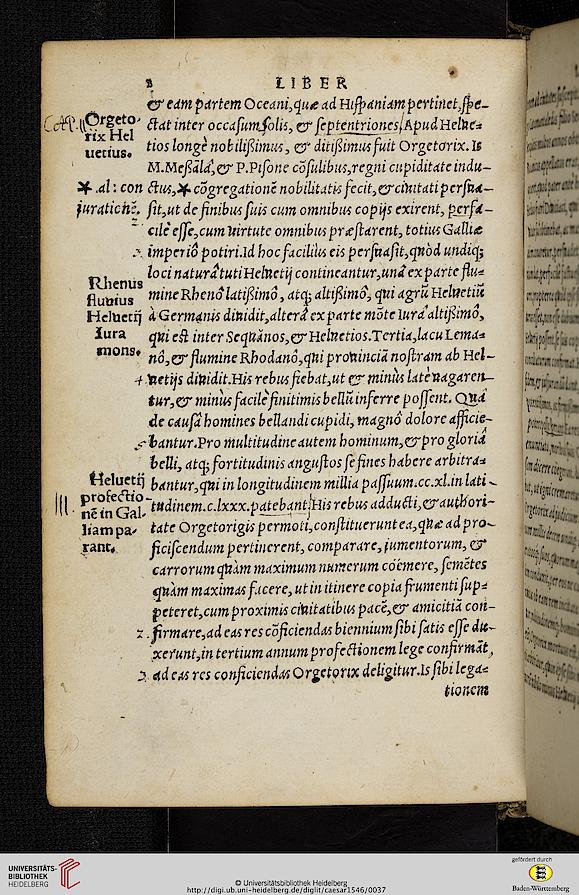 8 LIBER
& eam partem Oceani, quæ ad Hispaniam pertinet, spe-
ctat inter occasum solis, & septentriones. Apud Helue-
tios longè nobilißimus, & ditißimus fuit Orgetorix. Is
M. Meßala, & P. Pisone cõsulibus, regni cupiditate indu-
ctus, * cõgregationẽ nobilitatis fecit, & ciuitati persua-
sit, ut de finibus suis cum omnibus copijs exirent, perfa-
cile esse, cum uirtute omnibus præstarent, totius Galliæ
imperiô potiri. Id hoc facilius eis persuasit, quòd undiq;
loci naturâ tuti Heluetij contineantur, unâ ex parte flu-
mine Rhenô latißimô, atq; altißimô, qui agrũ Heluetiũ
à Germanis diuidit, alterâ ex parte mõte Iurâ altißimô,
qui est inter Sequanos, & Heluetios. Tertia, lacu Lema-
nô, & flumine Rhodanô, qui prouinciã nostram ab Hel-
uetijs diuidit. His rebus fiebat, ut & minùs latè uagaren-
tur, & minùs facilè finitimis bellũ inferre possent. Quâ
de causâ homines bellandi cupidi, magnô dolore afficie-
bantur. Pro multitudine autem hominum, & pro gloriâ
belli, atq; fortitudinis angustos se fines habere arbitra-
bantur, qui in longitudinem millia passuum. cc. xl. in lati-
tudinem. c. lxxx. patebant. His rebus adducti, & authori-
tate Orgetorigis permoti, constituerunt ea, quæ ad pro-
ficiscendum pertinerent, comparare, iumentorum, &
carrorum quàm maximum numerum coëmere, semẽtes
quàm maximas facere, ut in itinere copia frumenti sup-
peteret, cum proximis ciuitatibus pacẽ, & amicitiã con-
firmare, ad eas res cõficiendas biennium sibi satis esse du-
xerunt, in tertium annum profectionem lege confirmãt,
ad eas res conficiendas Orgetorix deligitur. Is sibi lega-
tionem
CAP. II
Orgeto-
rix Hel
uetius.
* .al: con
iurationẽ.
2.
3.
Rhenus
fluuius
Heluetij
Iura
mons.
4
5
III.
Heluetij
profectio-
nẽ in Gal-
liam pa-
rant.
2.
3
UNIVERSITÄTS-
BIBLIOTHEK
HEIDELBERG
© Universitätsbibliothek Heidelberg
http://digi.ub.uni-heidelberg.de/diglit/caesar1546/0037
gefördert durch
Baden-Württemberg